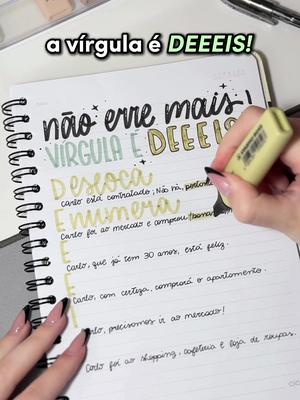 a vírgula é DEEEIS!
não erre mais!
VÍRGULA É DEEEIS
Desloca
Carlo está contratado; Não há,
Enumera
Carlo foi ao mercado e comprou
E
Carlo, que já tem 30 anos, está feliz.
E
Carlo, com certeza, comprará o apartamento.
I
Carlo, precisamos ir ao mercado!
Carlo foi ao shopping, cafeteria e loja de roupas.